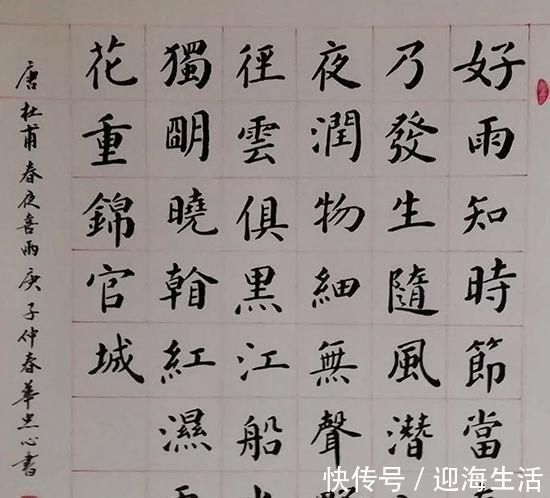 好雨知時節當
乃發生隨風潛
夜潤物細無聲
徑雲俱黑江船
獨朙曉看紅濕
花重錦官城
唐杜甫春夜喜雨庚子仲春華忠心書
快传号 / 迎海生活